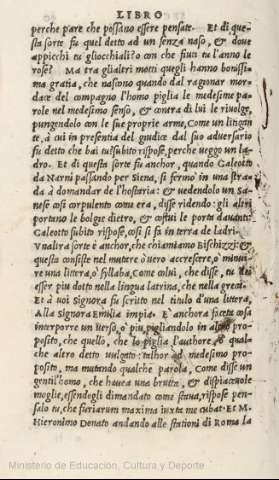 LIBRO
perche pare che possano essere pensate. Et di que-
sta sorte fu quel detto ad un senza naso, & doue
appicchi tu gliocchiali? o con che fiuti tu l'anno le
rose? Ma tra glialtri motti quegli hanno bonissi-
ma gratia, che nascono quando dal ragionar mor-
dace del compagno l'homo piglia le medesime pa-
role nel medesimo senso, & contra di lui le riuolge,
pungendolo con le sue proprie arme, Come un litigan
te, à cui in presentia del giudice dal suo aduersario
fu detto che bai tu? subito rispose, perche ueggo un la-
dro. Et di questa sorte fu anchor, quando Galeotto
da Narni passando per Siena, si fermò in una stra-
da à domandar de l'hostaria: & uedendolo un Sa-
nese cosi corpulento comu era, disse ridendo: gli altri
portano le bolgie dietro, & costui le porta dauanti:
Galeotto subito rispose, cosi si fa in terra de ladri.
Vnaltra sorte è anchor, che chiamiamo Bischizzi: &
questa consiste nel mutare ò uero accrescere, ò minui
re una littera, ò syllaba, Come colui, che disse, tu dei
esser piu dotto nella lingua latrina, che nella greca.
Et à uoi Signora fu scritto nel titulo d'una littera,
Alla Signora Emilia impia. E' anchora faceta cosa
interporre un uerso, o piu, pigliandolo in altro pro-
posito, che quello, che lo piglia l'authore, o qual
che altro detto uulgato: talhor ad medesimo pro-
posito, ma mutando qualche parola, Come disse un
gentil'homo, che hauea una brutta, & dispiaceuole
moglie, essendogli dimandato come staua, rispose pen-
salo tu, che furiarum maxima iuxta me cubat. Et M.
Hieronimo Donato andando alle stationi di Roma la
Ministerio de Educación, Cultura y Deporte